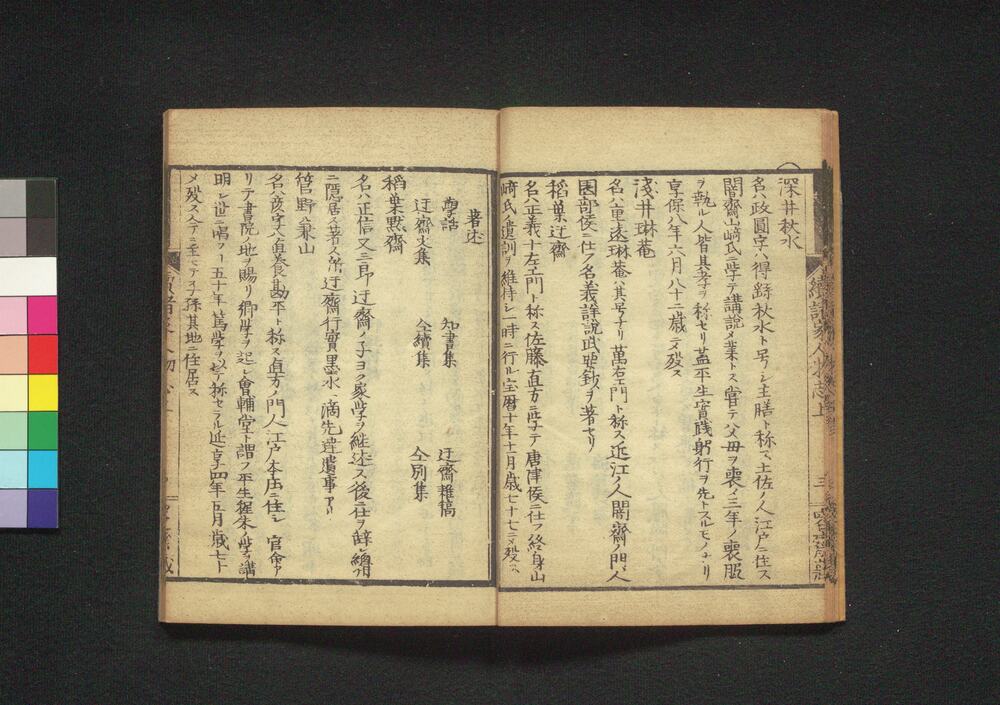 深井秋水
名ハ政圓字ハ得縣秋水ト号シ主膳ト称ス土佐ノ人江戸ニ住ス
闇齋山﨑氏ニ学テ講説ヲ業トス嘗テ父母ヲ喪メ三年ノ喪服
ヲ執ル人皆其孝ヲ称セリ蓋平生實践躬行ヲ先トスルモノナリ
享保八年六月八十二歳ニテ歿ス
淺井琳菴
名ハ重遠琳菴ハ其号ナリ萬右エ門ト称ス近江ノ人闇齋ノ門人
園部侯ニ仕フ名義詳説武要鈔ヲ著セリ
稻葉迂齋
名ハ正義十左エ門ト称ス佐藤直方ニ学テ唐津侯ニ仕フ終身山
﨑氏ノ遺訓ヲ維持シ一時ニ行ル宝暦十年十一月歳七十七ニメ歿ス
續諸家人物志上
三
著述
學話 知書集 迂齋雜稿
迂齋文集 仝續集 仝別集
稻葉黙齋
名ハ正信又三郎迂齋ノ子ヨク家学ヲ継述ス後ニ仕ヲ辞シ總州
ニ隠居ス著ス所迂齋行實墨水一滴先達遺事アリ
管野兼山
名ハ彦字ハ直養勘平ト称ス直方ノ門人江戸本庄ニ住シ官命ア
リテ書院ノ地ヲ賜リ郷学ヲ起シ會輔堂ト謂フ平生程朱ノ学ヲ講
明シ世ニ鳴フ﹁五十年篤学ヲ以テ称セラル延享四年五月歳七十
メ歿ス今ニ至ニテ子孫其地ニ住居ス